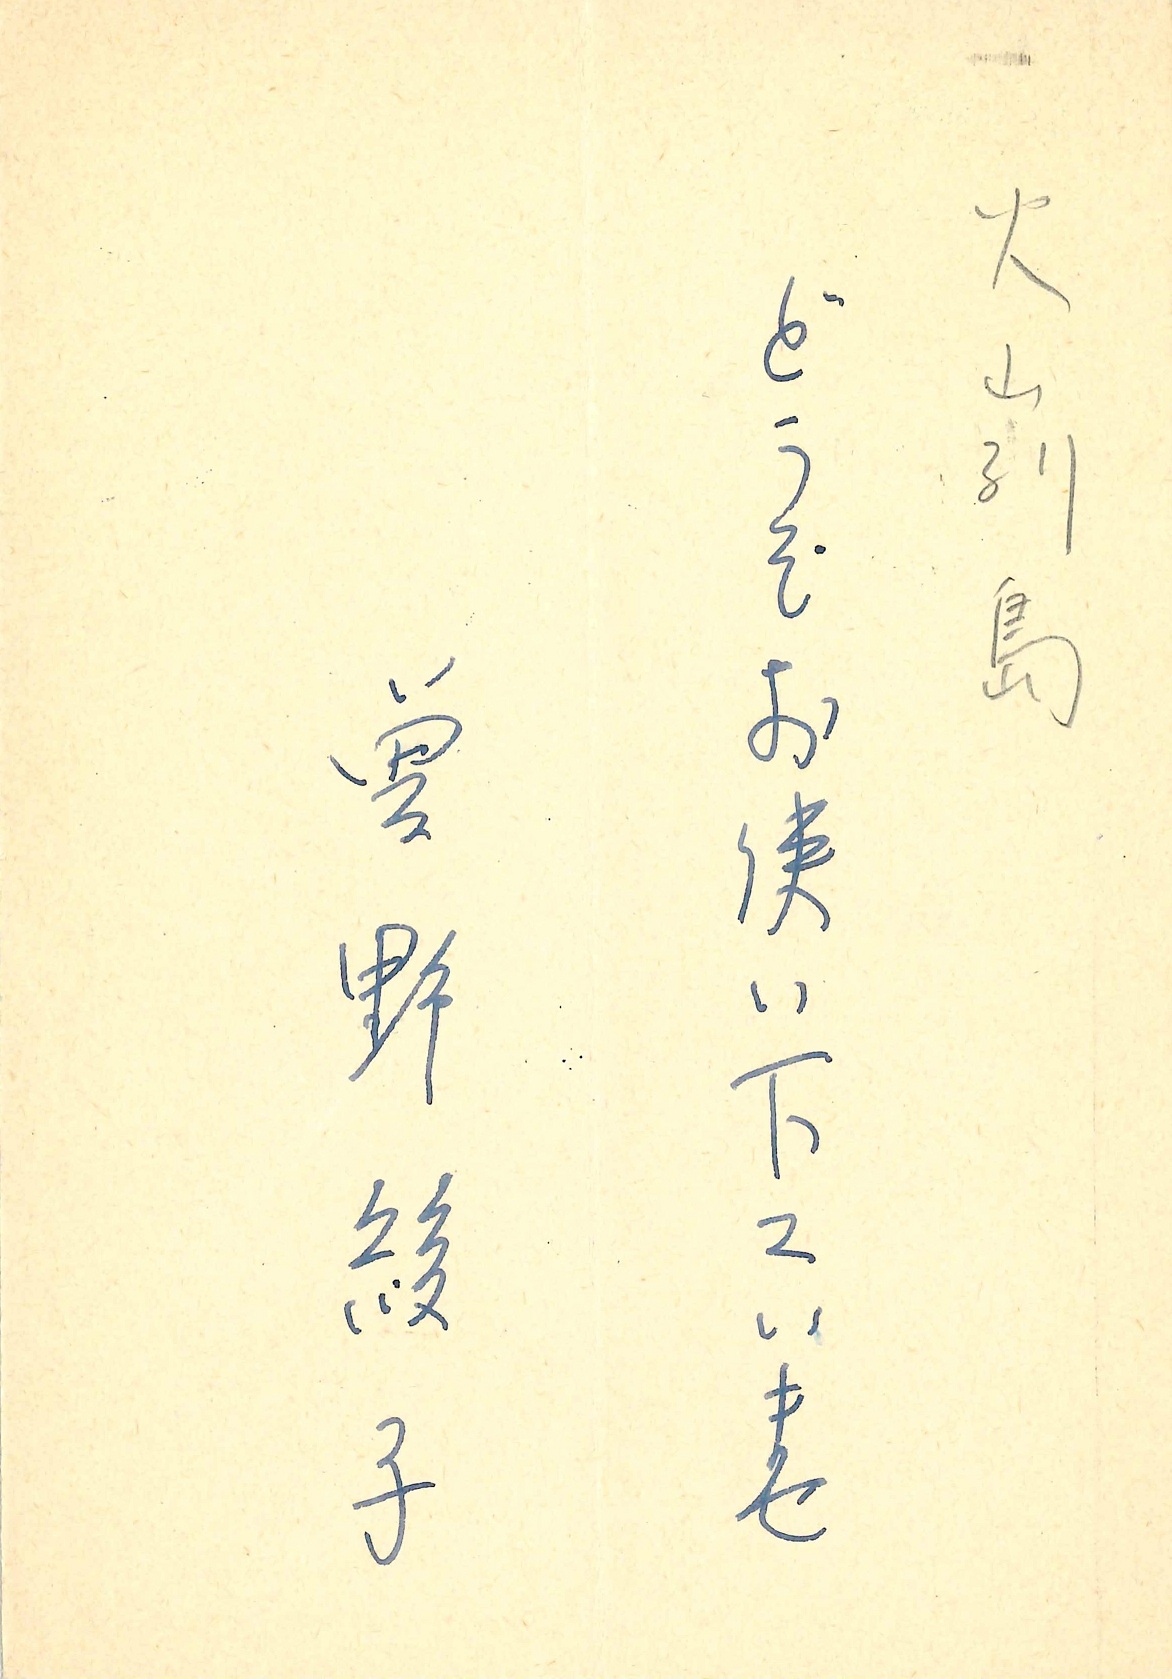 火山列島
どうぞお使い下さいませ
曽野綾子